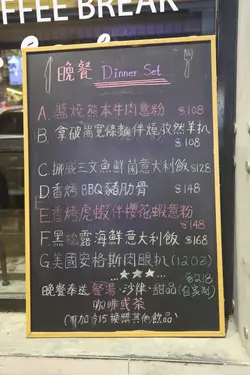 FFEE BREAK
晚餐 Dinner Set
A. 醬燒熊本牛肉意粉 $108
B. 拿破崙寬條麵伴燒孜然羊扒
$108
C 挪威三文魚鮮菌意大利飯 $128
D 香烤BBQ豬肋骨 $148
E 香烤虎蝦伴櫻花蝦意粉
$148
F. 黑松露海鮮意大利飯 $168
G 美國安格斯肉眼扒 (12OZ)
$218
晚餐奉送 餐湯·沙律·甜品(自家制)
咖啡或茶
(另加$15換購其他飲品)